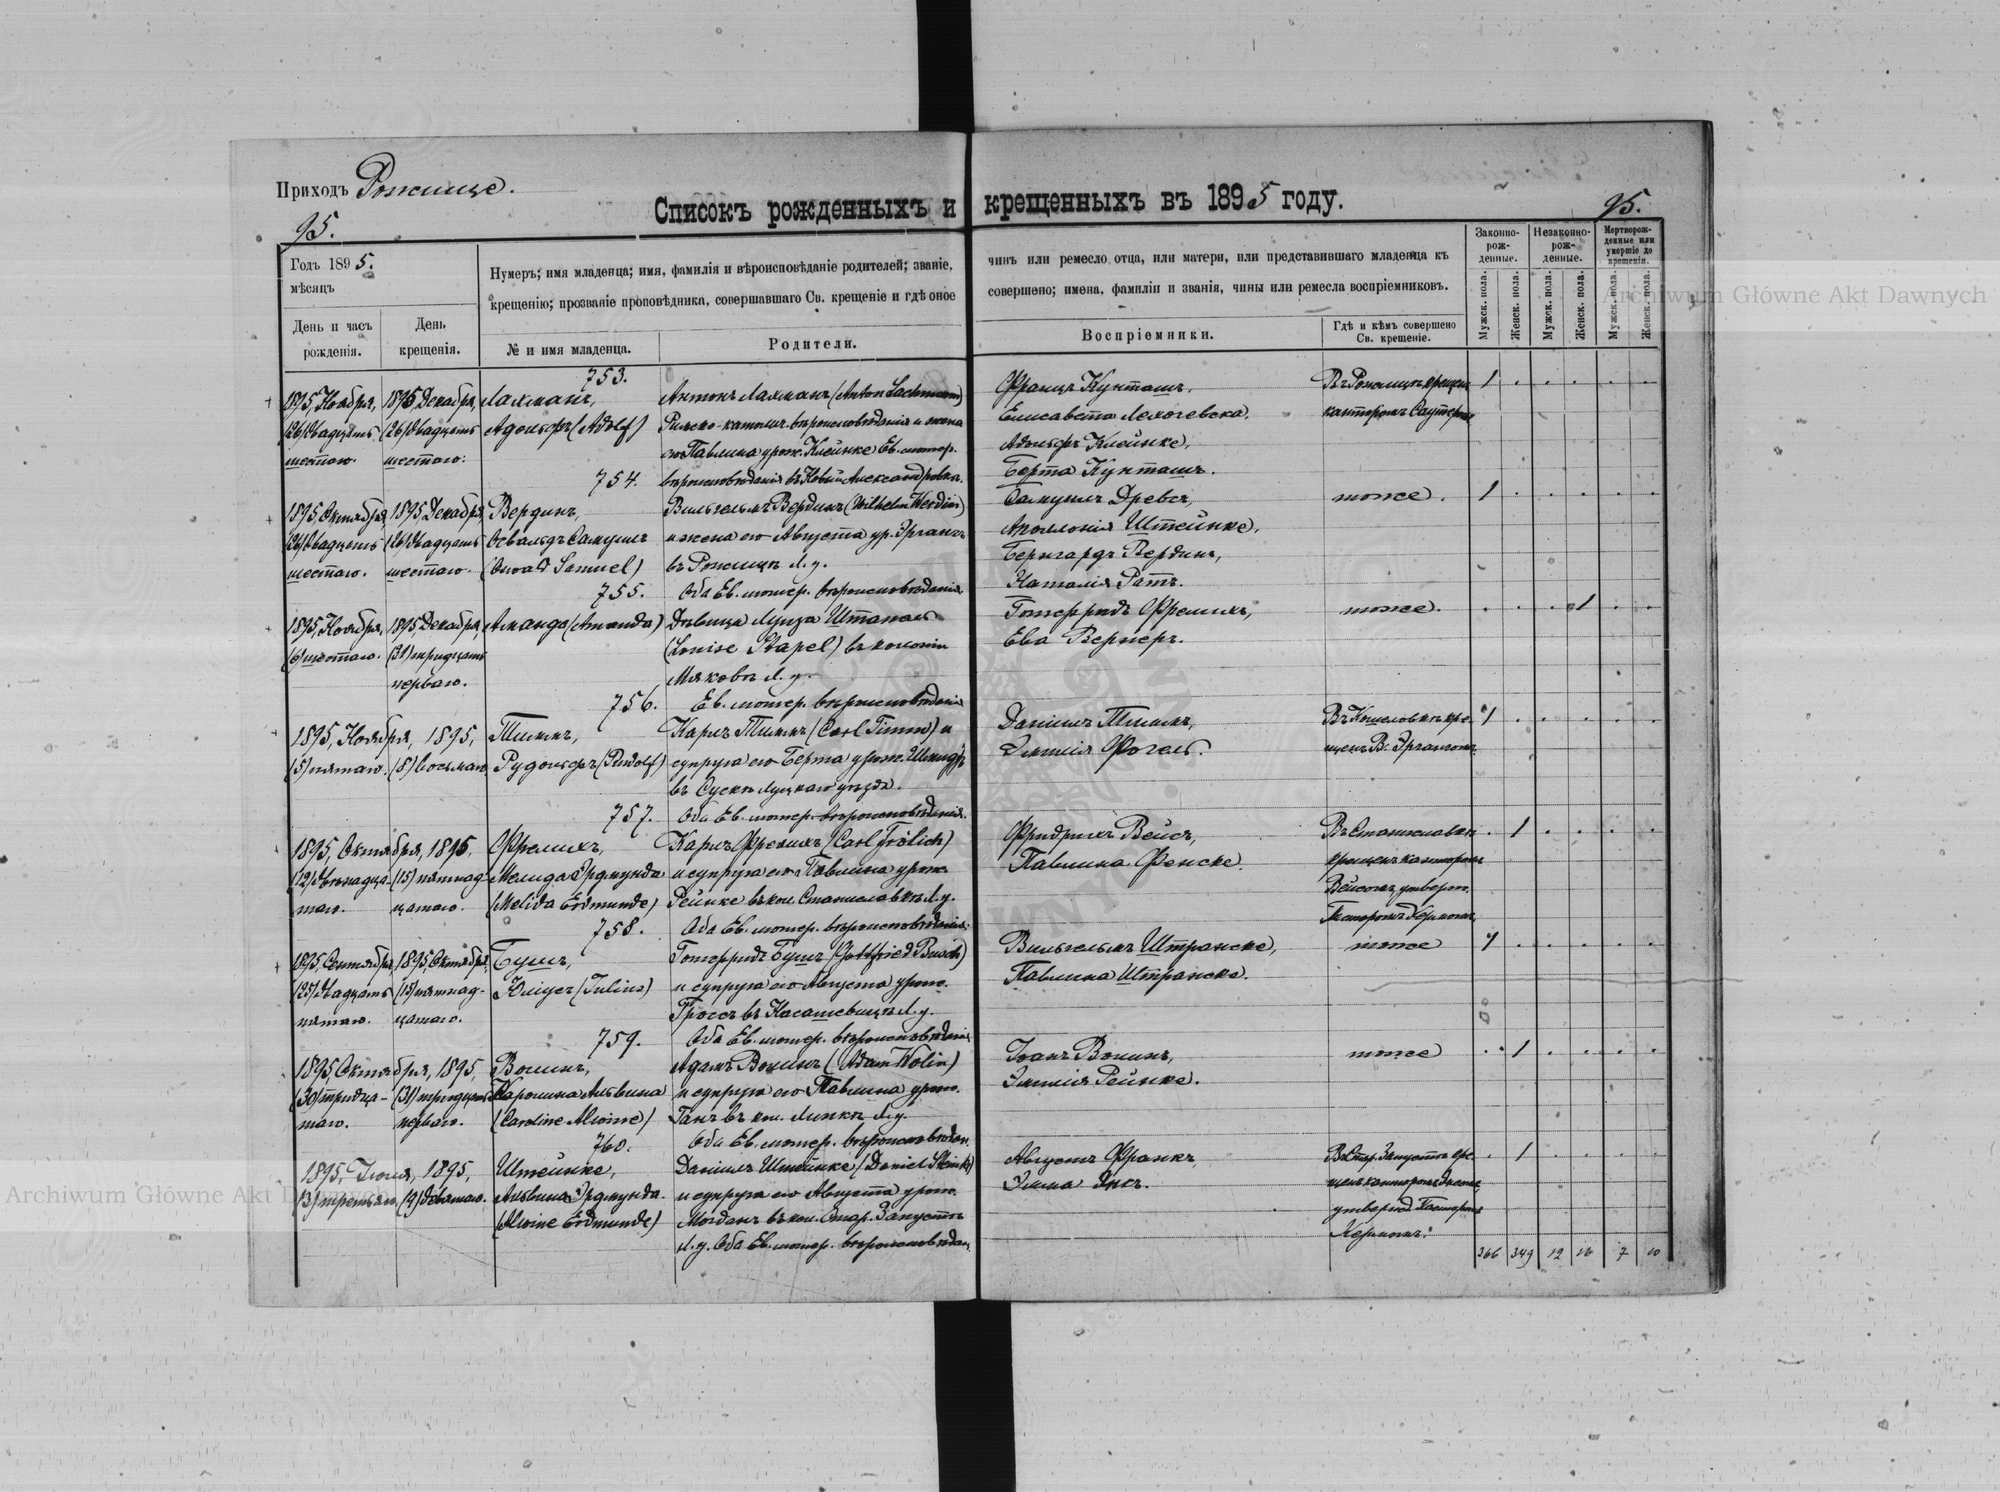 Приходъ Рожище.
95.
Списокъ рожденныхъ и крещенныхъ въ 1895 году.
95.
Годъ 1895.
мѣсяцъ
День и часъ рожденія.
День крещенія.
Нумеръ; имя младенца; имя, фамилія и вѣроисповѣданіе родителей; званіе, чинъ или ремесло отца, или матери, или представившаго младенца къ
крещенію; прозваніе проповѣдника, совершавшаго Св. крещеніе и гдѣ оное совершено; имена, фамиліи и званія, чины или ремесла воспріемниковъ.
№ и имя младенца.
Родители.
Воспріемники.
Гдѣ и кѣмъ совершено Св. крещеніе.
Законно-рож-денные.
Незаконно-рож-денные.
Мертворож-денные или умершіе до крещенія.
Мужск. пола.
Женск. пола.
Мужск. пола.
Женск. пола.
Мужск. пола.
Женск. пола.
753.
1895, Ноября, 1895 Декабря, Лахманъ, Антонъ Лахманъ (Anton Lachmann) Францъ Кунташъ, Въ Рожищѣ крещен 1
(26) двадцать (26) двадцать Адольфъ (Adolf) Римско-катол. вѣроисповѣданія и жена Елисавета канторомъ
шестаго. шестаго. его Павлина урож. Клейнке Ев. лютер. Адольфъ Клейнке,
754. вѣроисповѣданія въ Новый Александровкѣ. Берта Кунташъ.
1895, Октября, 1895, Декабря, Вердинъ, Вильгельмъ Вердинъ (Wilhelm Werdin) Самуилъ Древсъ, тоже. 1
(26) двадцать (26) двадцать Освальдъ Самуилъ и жена его Августа ур. Аполлонія Штейнке,
шестаго. шестаго. (Oswald Samuel) въ Рожищѣ Л. у. Бернгардъ Вердинъ,
755. Оба Ев. лютер. вѣроисповѣданія Наталія Ратъ.
1895, Ноября, 1895, Декабря, Аманда (Amanda) Дѣвица Луиза Штапель Готфридъ Фрелихъ, тоже. 1
(6) шестаго. (31) тридцать (Louise Stapel) въ колоніи Ева Вернеръ.
перваго. Л. у.
756. Ев. лютер. вѣроисповѣданія
1895, Ноября, 1895, Тиммъ, Карлъ Тиммъ (Carl Timm) и Даніилъ Тиммъ, 1
(5) пятаго. (8) восьмаго Рудольфъ (Rudolf) супруга его Берта урож. Эмилія Фогель.
въ Сускѣ Луцкаго уѣзда.
757. Оба Ев. лютер. вѣроисповѣданія.
1895, Октября, 1895, Фрелихъ, Карлъ Фрелихъ (Carl Frölich) Фридрихъ Вейсъ, Въ Станиславкѣ 1
(12) двѣнадца- (15) пятнад- Мелида Эрдмунда и супруга его Павлина урож. Павлина Фенске. крещенъ канторомъ
таго. цатаго. (Melida Erdmunde) Рейнке въ кол. Станиславкѣ Л. у. Вейсомъ, утвержд.
758. Оба Ев. лютер. вѣроисповѣданія. Пасторомъ Керномъ.
1895, Сентября, 1895, Октября, Бушъ, Готфридъ Бушъ (Gottfried Busch) Вильгельмъ Штранске, тоже 1
(25) двадцать (15) пятнад- Юліусъ (Julius) и супруга его Августа урож. Павлина Штранске.
пятаго. цатаго. Гроссъ въ Л. у.
759. Оба Ев. лютер. вѣроисповѣданія
1895 Октября, 1895, Волинъ, Адамъ Волинъ (Adam Wolin) Іоанъ Волинъ, тоже 1
(30) тридца- (31) тридцать Каролина Альвина и супруга его Павлина урож. Эмилія Рейнке.
таго. перваго. (Caroline Alwine) Ганъ въ кол. Липкѣ Л. у.
760. Оба Ев. лютер. вѣроисповѣдан.
1895, Іюля, 1895, Штейнке, Даніилъ Штейнке (Daniel Steinke) Августъ Франкъ, 1
(3) третьяго (9) девятаго. Альвина Эрдмунда и супруга его Августа урож. Эмма
(Alwine Erdmunde) въ кол. Стар. Запустъ утвержд. Пасторомъ
Л. у. Оба Ев. лютер. вѣроисповѣдан. Керномъ.
366 349 12 16 7 10
Archiwum Główne Akt Dawnych
Archiwum Główne Akt Dawnych